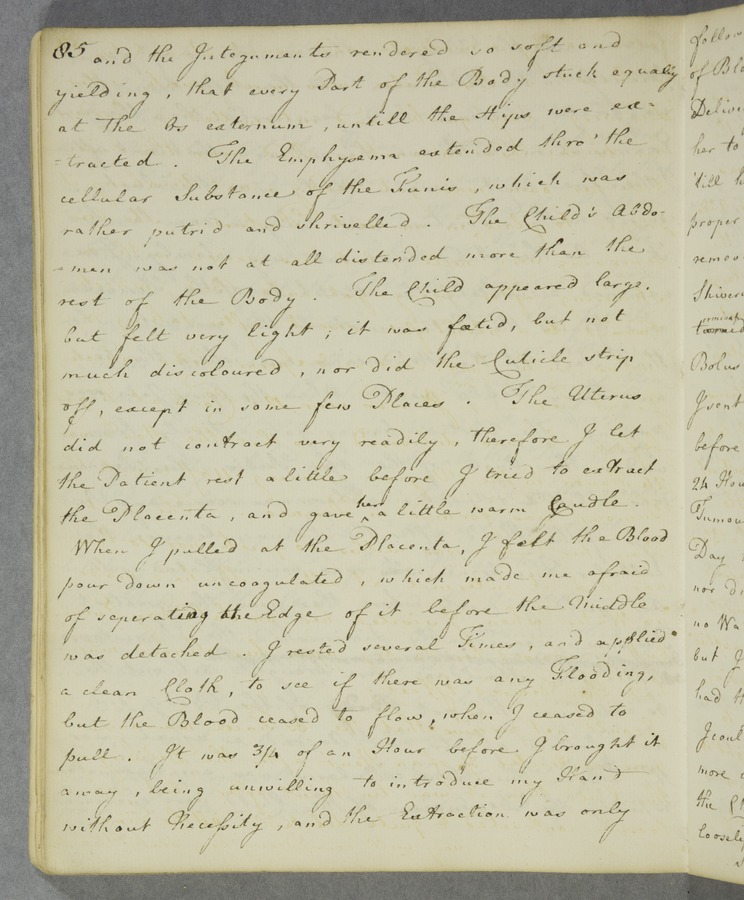 85 and the Integuments rendered so soft and
yielding, that every Part of the Body stuck equally
at The Os externum, untill the Hips were ex-
-tracted. The Emphysema extended thro' the
cellular Substance of the Funis, which was
rather putrid and shrivelled. The Child's Abdo-
-men was not at all distended more than the
rest of the Body. The Child appeared large,
but felt very light; it was fœtid, but not
much discoloured, nor did the Cuticle strip
off, except in some few Places. The Uterus
did not contract very readily, therefore I let
the Patient rest a little before I tried to extract
the Placenta, and gave her a little warm Caudle.
When I pulled at the Placenta, I felt the Blood
pour down uncoagulated, which made me afraid
of seperating the Edge of it before the Middle
was detached. I rested several Times, and applied
a clean Cloth, to see if there was any Flooding,
but the Blood ceased to flow, when I ceased to
pull. It was 3/4 of an Hour before I brought it
away, being unwilling to introduce my Hand
without Necessity, and the Extraction was only
follow
of Blo
Delive
her to
'till h
proper
remov
Shiver
Bolus
I sent
before
24 Hou
Tumou
Day
nor di
no Wa
but I
had t
I coul
more
the
loosely